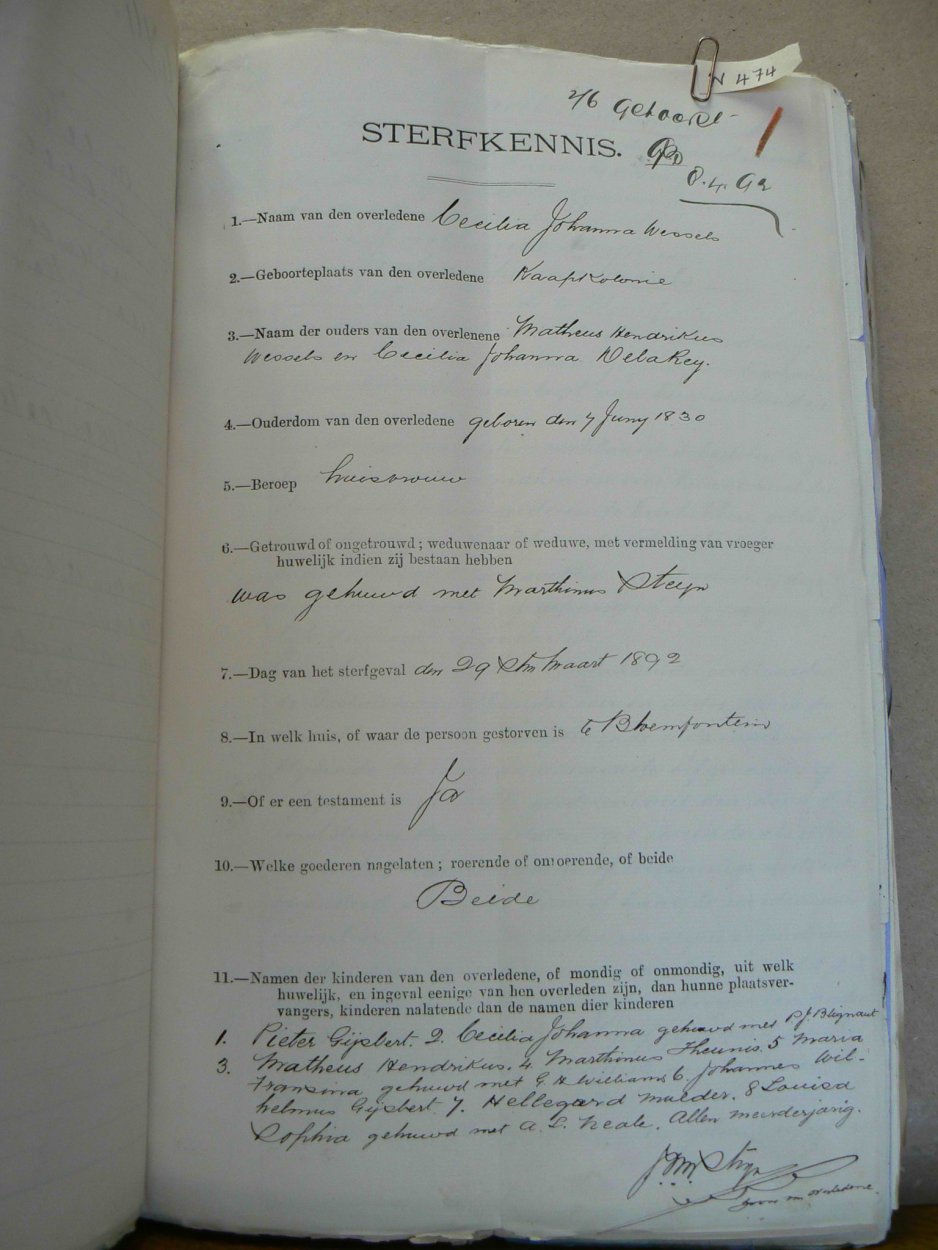 N 474
STERFKENNIS.
8.4.92
1.—Naam van den overledene Cecilia Johanna Wessels
2.—Geboorteplaats van den overledene Kaapkolonie
3.—Naam der ouders van den overlenene Matheus Hendrikus
Wessels en Cecilia Johanna Delarey.
4.—Ouderdom van den overledene geboren den 7 Juny 1830
5.—Beroep huisvrouw
6.—Getrouwd of ongetrouwd ; weduwenaar of weduwe, met vermelding van vroeger
huwelijk indien zij bestaan hebben
was gehuwd met Marthinus Steyn
7.—Dag van het sterfgeval den 29 Sten Maart 1892
8.—In welk huis, of waar de persoon gestorven is te Bloemfontein
9.—Of er een testament is Ja
10.—Welke goederen nagelaten ; roerende of onroerende, of beide
Beide
11.—Namen der kinderen van den overledene, of mondig of onmondig, uit welk
huwelijk, en ingeval eenige van hen overleden zijn, dan hunne plaatsver-
vangers, kinderen nalatende dan de namen dier kinderen
1. Pieter Gijsbert. 2. Cecilia Johanna gehuwd met P.J. Blignaut
3. Matheus Hendrikus. 4 Marthinus Theunis. 5 Maria
Fransina gehuwd met G. H. Williams 6 Johannes Wil-
helmus Gijsbert 7. Hellegaard Mulder. 8 Louisa
Sophia gehuwd met A. L. Neale. Allen meerderjarig.
Steyn
zoon van overledene.